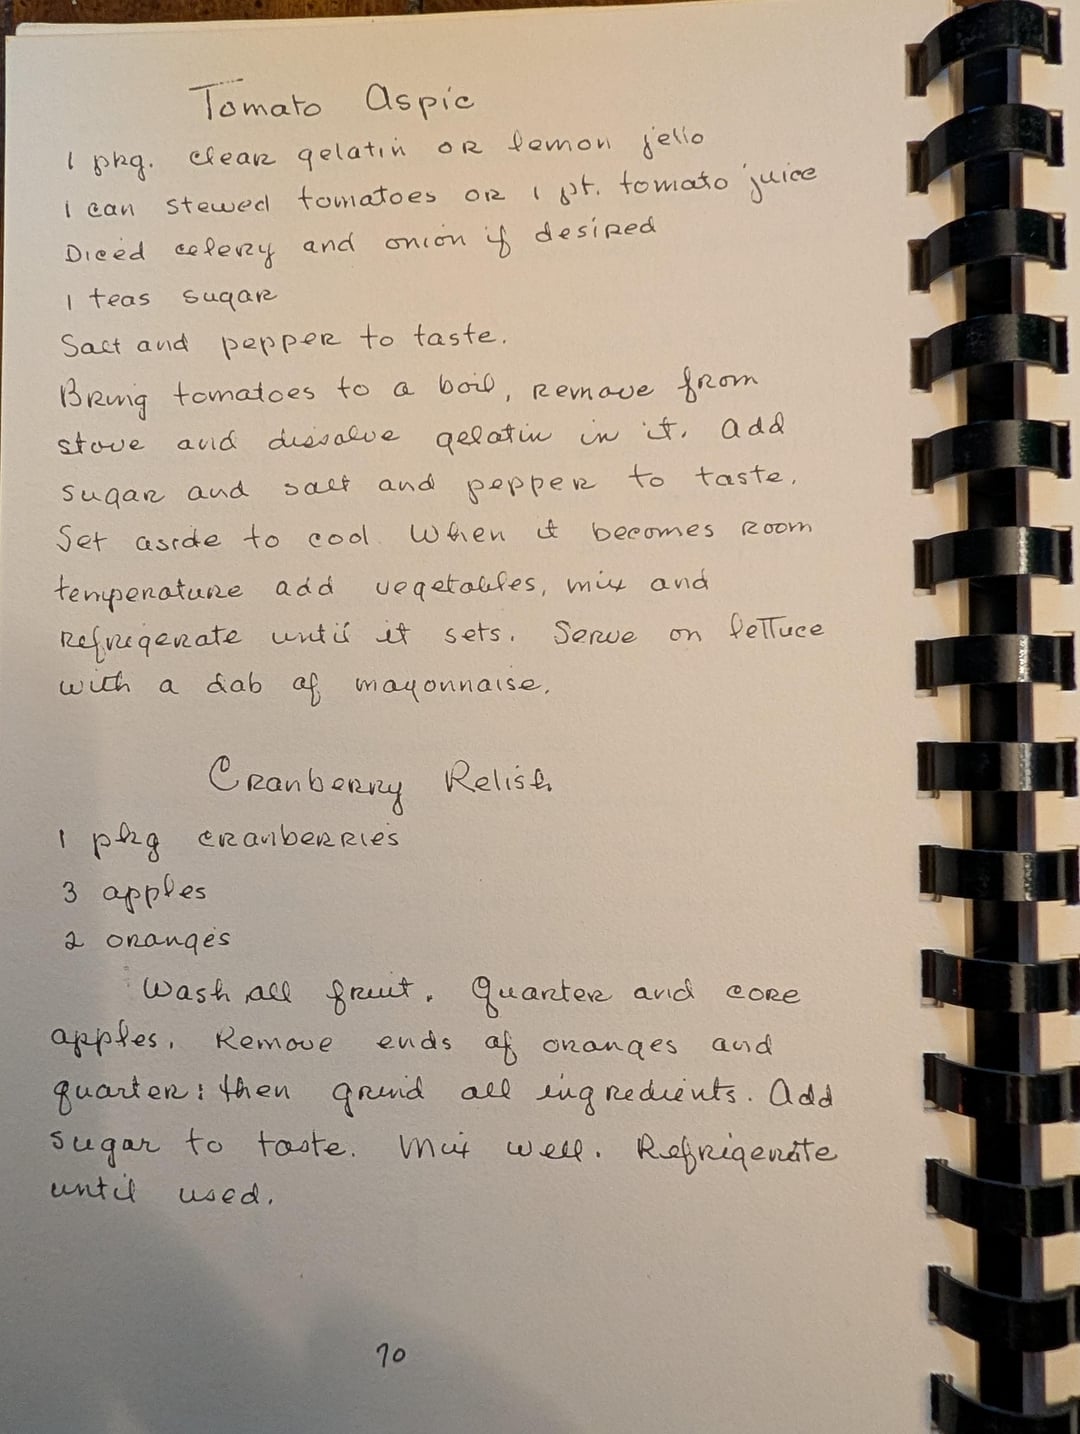 Tomato Aspic
1 pkg. clear gelatin or lemon jello
1 can stewed tomatoes or 1 pt. tomato juice
Diced celery and onion if desired
1 teas sugar
Salt and pepper to taste.
Bring tomatoes to a boil, remove from
stove and dissolve gelatin in it. Add
sugar and salt and pepper to taste.
Set aside to cool. When it becomes room
temperature add vegetables, mix and
refrigerate until it sets. Serve on lettuce
with a dab of mayonnaise.
Cranberry Relish
1 pkg cranberries
3 apples
2 oranges
Wash all fruit. Quarter and core
apples. Remove ends of oranges and
quarter: then grind all ingredients. Add
sugar to taste. Mix well. Refrigerate
until used.
70